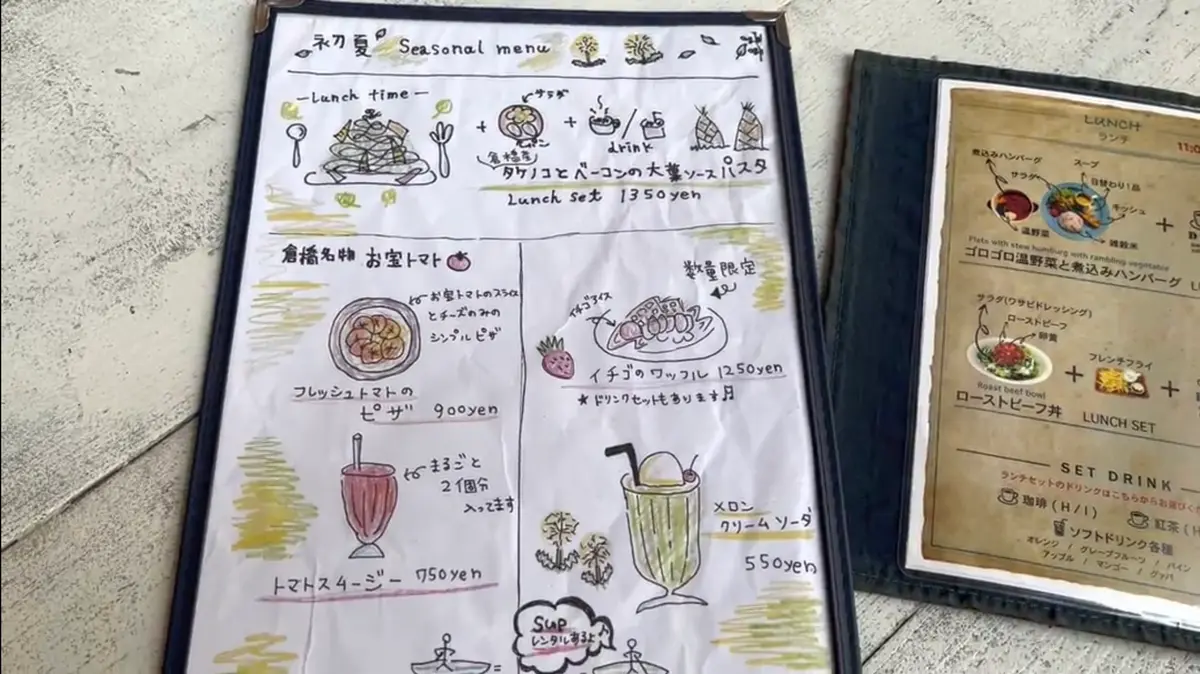 初夏 Seasonal menu
ーLunch timeー
サラダ
パン
drink
倉橋産
タケノコとベーコンの大葉ソースパスタ
Lunch set 1350yen
倉橋名物 お宝トマト
お宝トマトのスライス
とチーズのみの
シンプルピザ
フレッシュトマトの
ピザ 900yen
まるごと
2個分
入ってます
トマトスムージー 750yen
数量限定
イチゴアイス
イチゴのワッフル 1250yen
★ドリンクセットもあります♬
メロン
クリームソーダ
550yen
SUP
レンタルあるよ
LUNCH
ランチ
11:0
煮込みハンバーグ
スープ
サラダ
日替わり1品
キッシュ
温野菜
雑穀米
Plate with stew humburg with rambling vegetable
ゴロゴロ温野菜と煮込みハンバーグ
サラダ(ワサビドレッシング)
ローストビーフ
卵黄
フレンチフライ
Roast beef bowl
ローストビーフ丼 LUNCH SET
SET DRINK
ランチセットのドリンクはこちらからお選びく
珈琲(H/I)
紅茶(H
ソフトドリンク各種
オレンジ / グレープフルーツ / パイン
アップル / マンゴー / グァバ